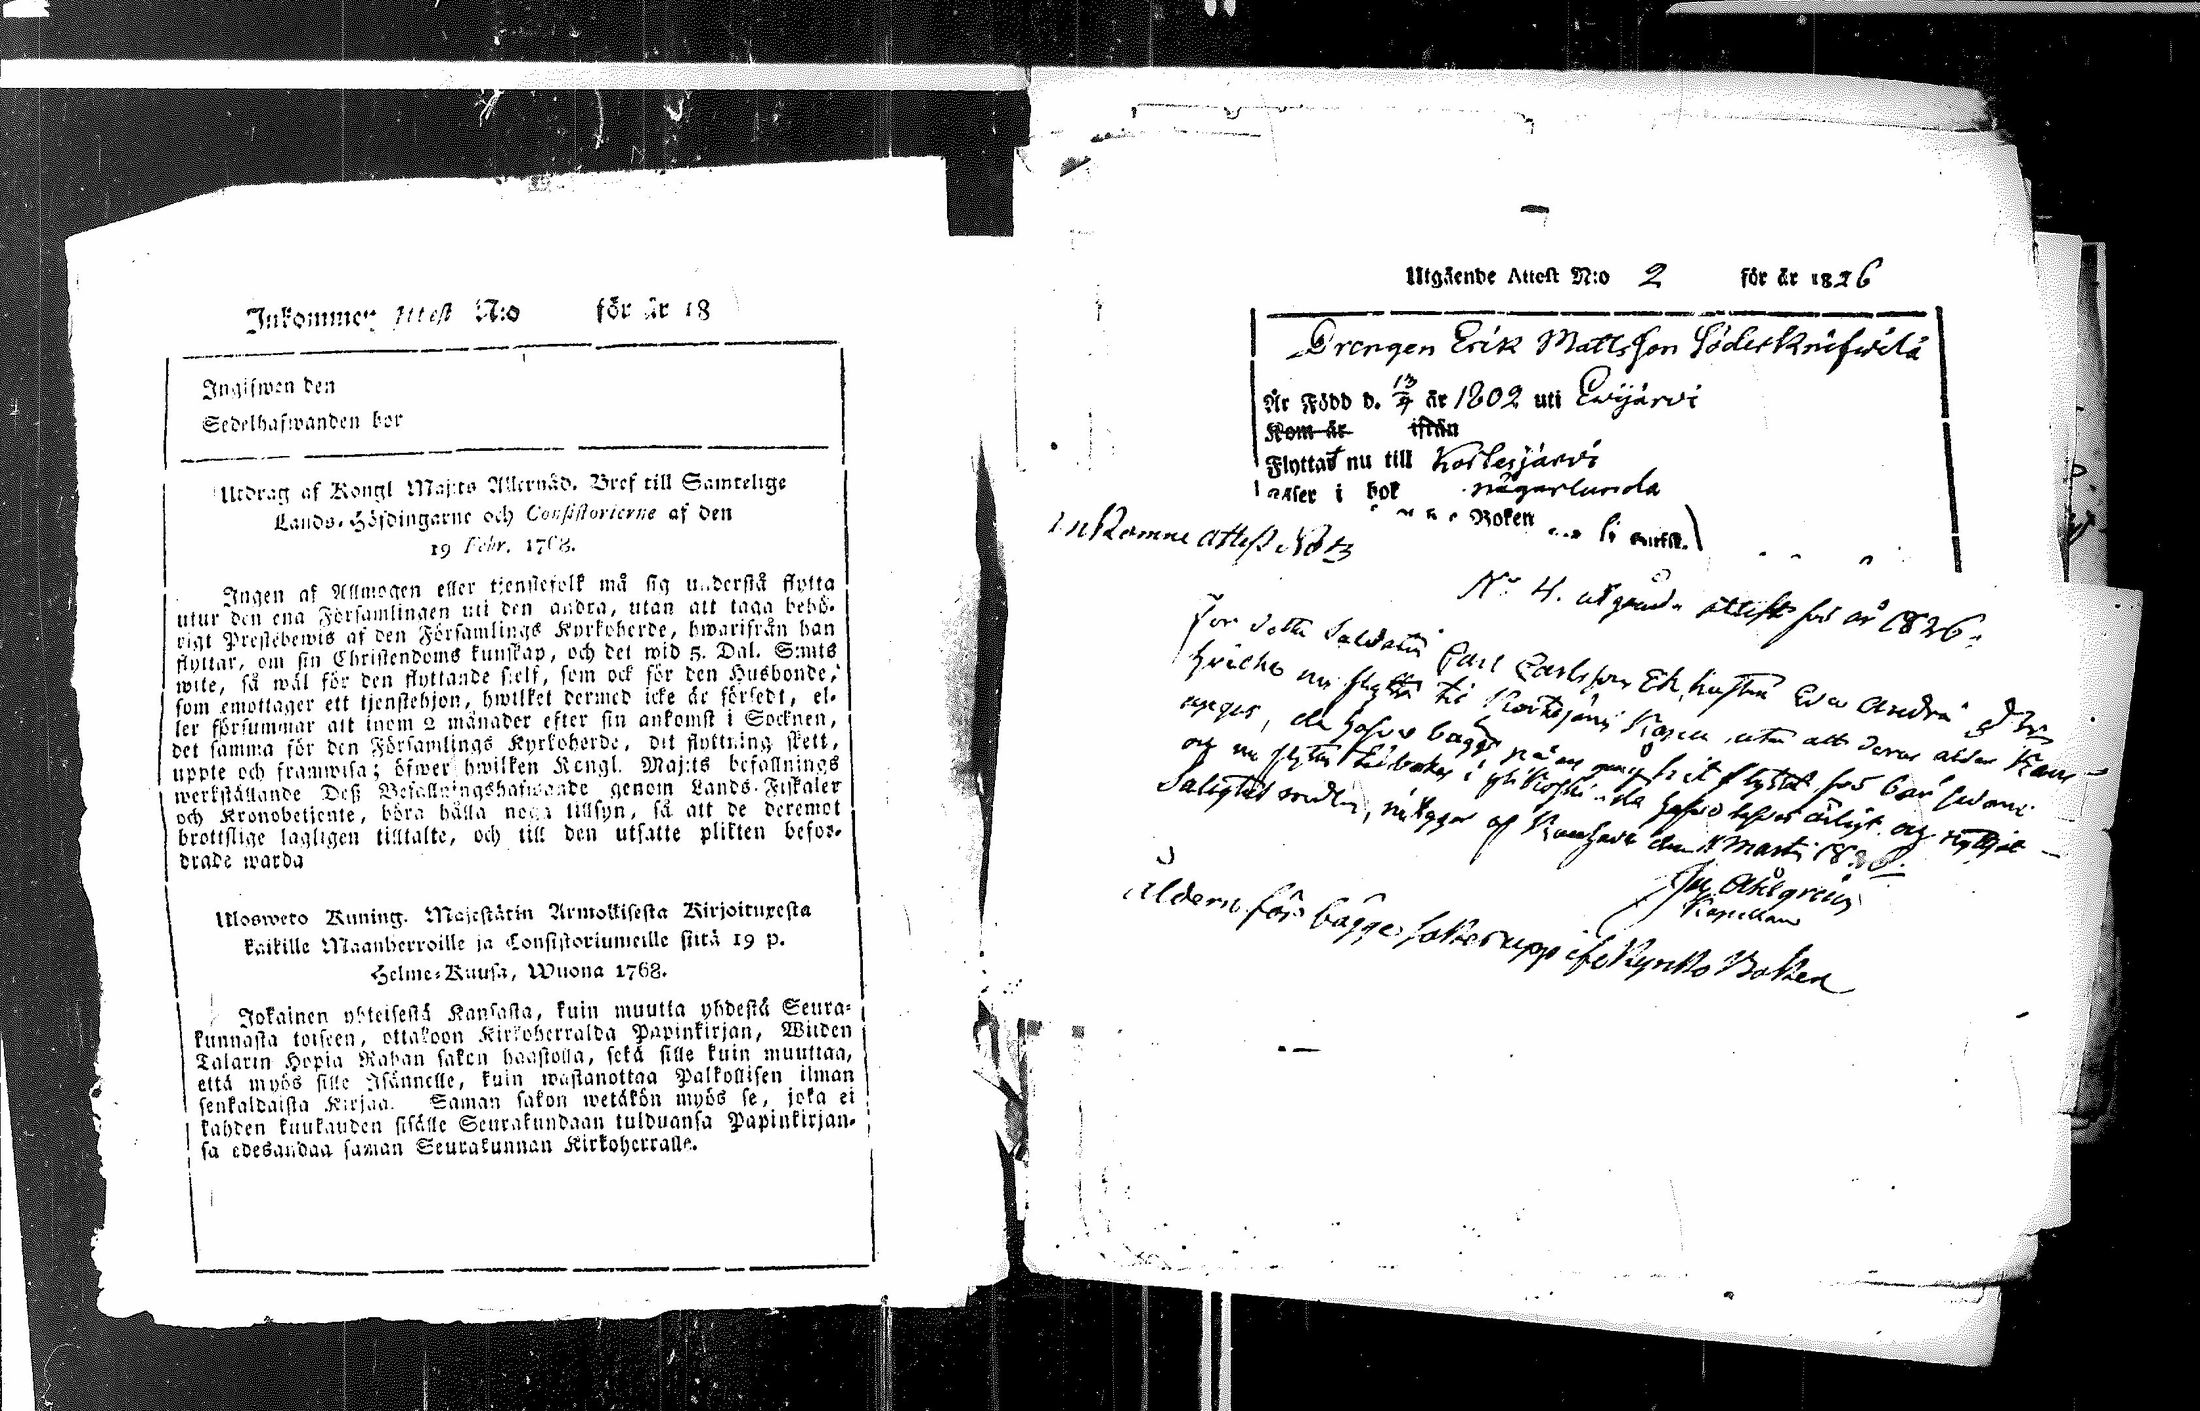 Inkommen Attest N:o för år 18
Ingifwen den
Sedelhafwanden bor
Utdrag af Kongl Maj:ts Allernåd. Bref till Samtelige
Lands-Höfdingarne och Consistorierne af den
19 Febr. 1768.
Ingen af Allmogen eller tjenstefolk må sig understå flytta
utur den ena Församlingen uti den andra, utan att taga behö-
rigt Prestebewis af den Församlings Kyrkoherde, hwarifrån han
flyttar, om sin Christendoms kunskap, och det wid 5. Dal. S:mts
wite, så wäl för den flyttande sielf, som ock för den Husbonde,
som emottager ett tjenstehjon, hwilket dermed icke är försedt, el-
ler försummar att inom 2 månader efter sin ankomst i Socknen,
det samma för den Församlings Kyrkoherde, dit flyttning skett,
uppte och framwisa; öfwer hwilken Kongl. Maj:ts befallnings
werkställande Deß Befallningshafwande genom Lands-Fiskaler
och Kronobetjente, böra hålla noga tillsyn, så att de deremot
brottslige lagligen tilltalte, och till den utsatte plikten befor-
drade warda
Ulosweto Kuning. Majestätin Armollisesta Kirjoituxesta
kaikille Maanherroille ja Consistoriumeille siitä 19 p.
Helme-Kuusa, Wuona 1768.
Jokainen yhteisestä Kansasta, kuin muutta yhdestä Seura-
kunnasta toiseen, ottakoon Kirkoherralda Papinkirjan, Wiiden
Talarin Hopia Rahan sakon haastolla, sekä sille kuin muuttaa,
että myös sille Isännelle, kuin wastanottaa Palkollisen ilman
senkaldaista Kirjaa. Saman sakon wetäkön myös se, joka ei
kahden kuukauden sisälle Seurakundaan tulduansa Papinkirjan-
sa edesandaa saman Seurakunnan Kirkoherralle.
Utgående Attest N:o 2 för år 1826
Drengen Erik Mattsson Söderknifwilä
Är Född d. 13/4 år 1802 uti Ewijärvi
Kom år ifrån
Flyttat nu till Kortesjärvi
Läser i bok någorlunda
Boken
Inkomne attest No 13
No 4. utgående attest för år 1826.
för detta Soldaten Carl Carlsson Ek, hustru Eva Andra
nu flytta til Kortesjärvi utan att deras ålder
de hafva bägge hit flyttat för
og nu flytta tilbaka i
Salighets medlen, intygar af den Marti
Ahlgren
Kapellan
åldern för bägge sökes upp i Kyrko Boken